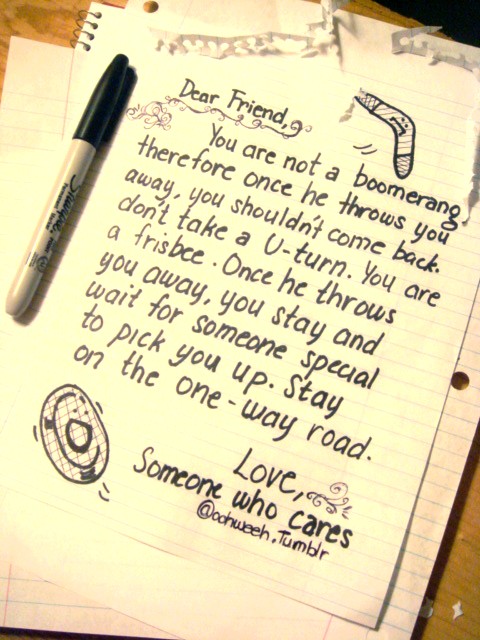 Dear Friend,
You are not a boomerang
therefore once he throws you
away, you shouldn't come back.
don't take a U-turn. You are
a frisbee. Once he throws
you away, you stay and
wait for someone special
to pick you up. Stay
on the one-way road.
Love,
Someone who cares
@oohweeh.Tumblr
Sharpie